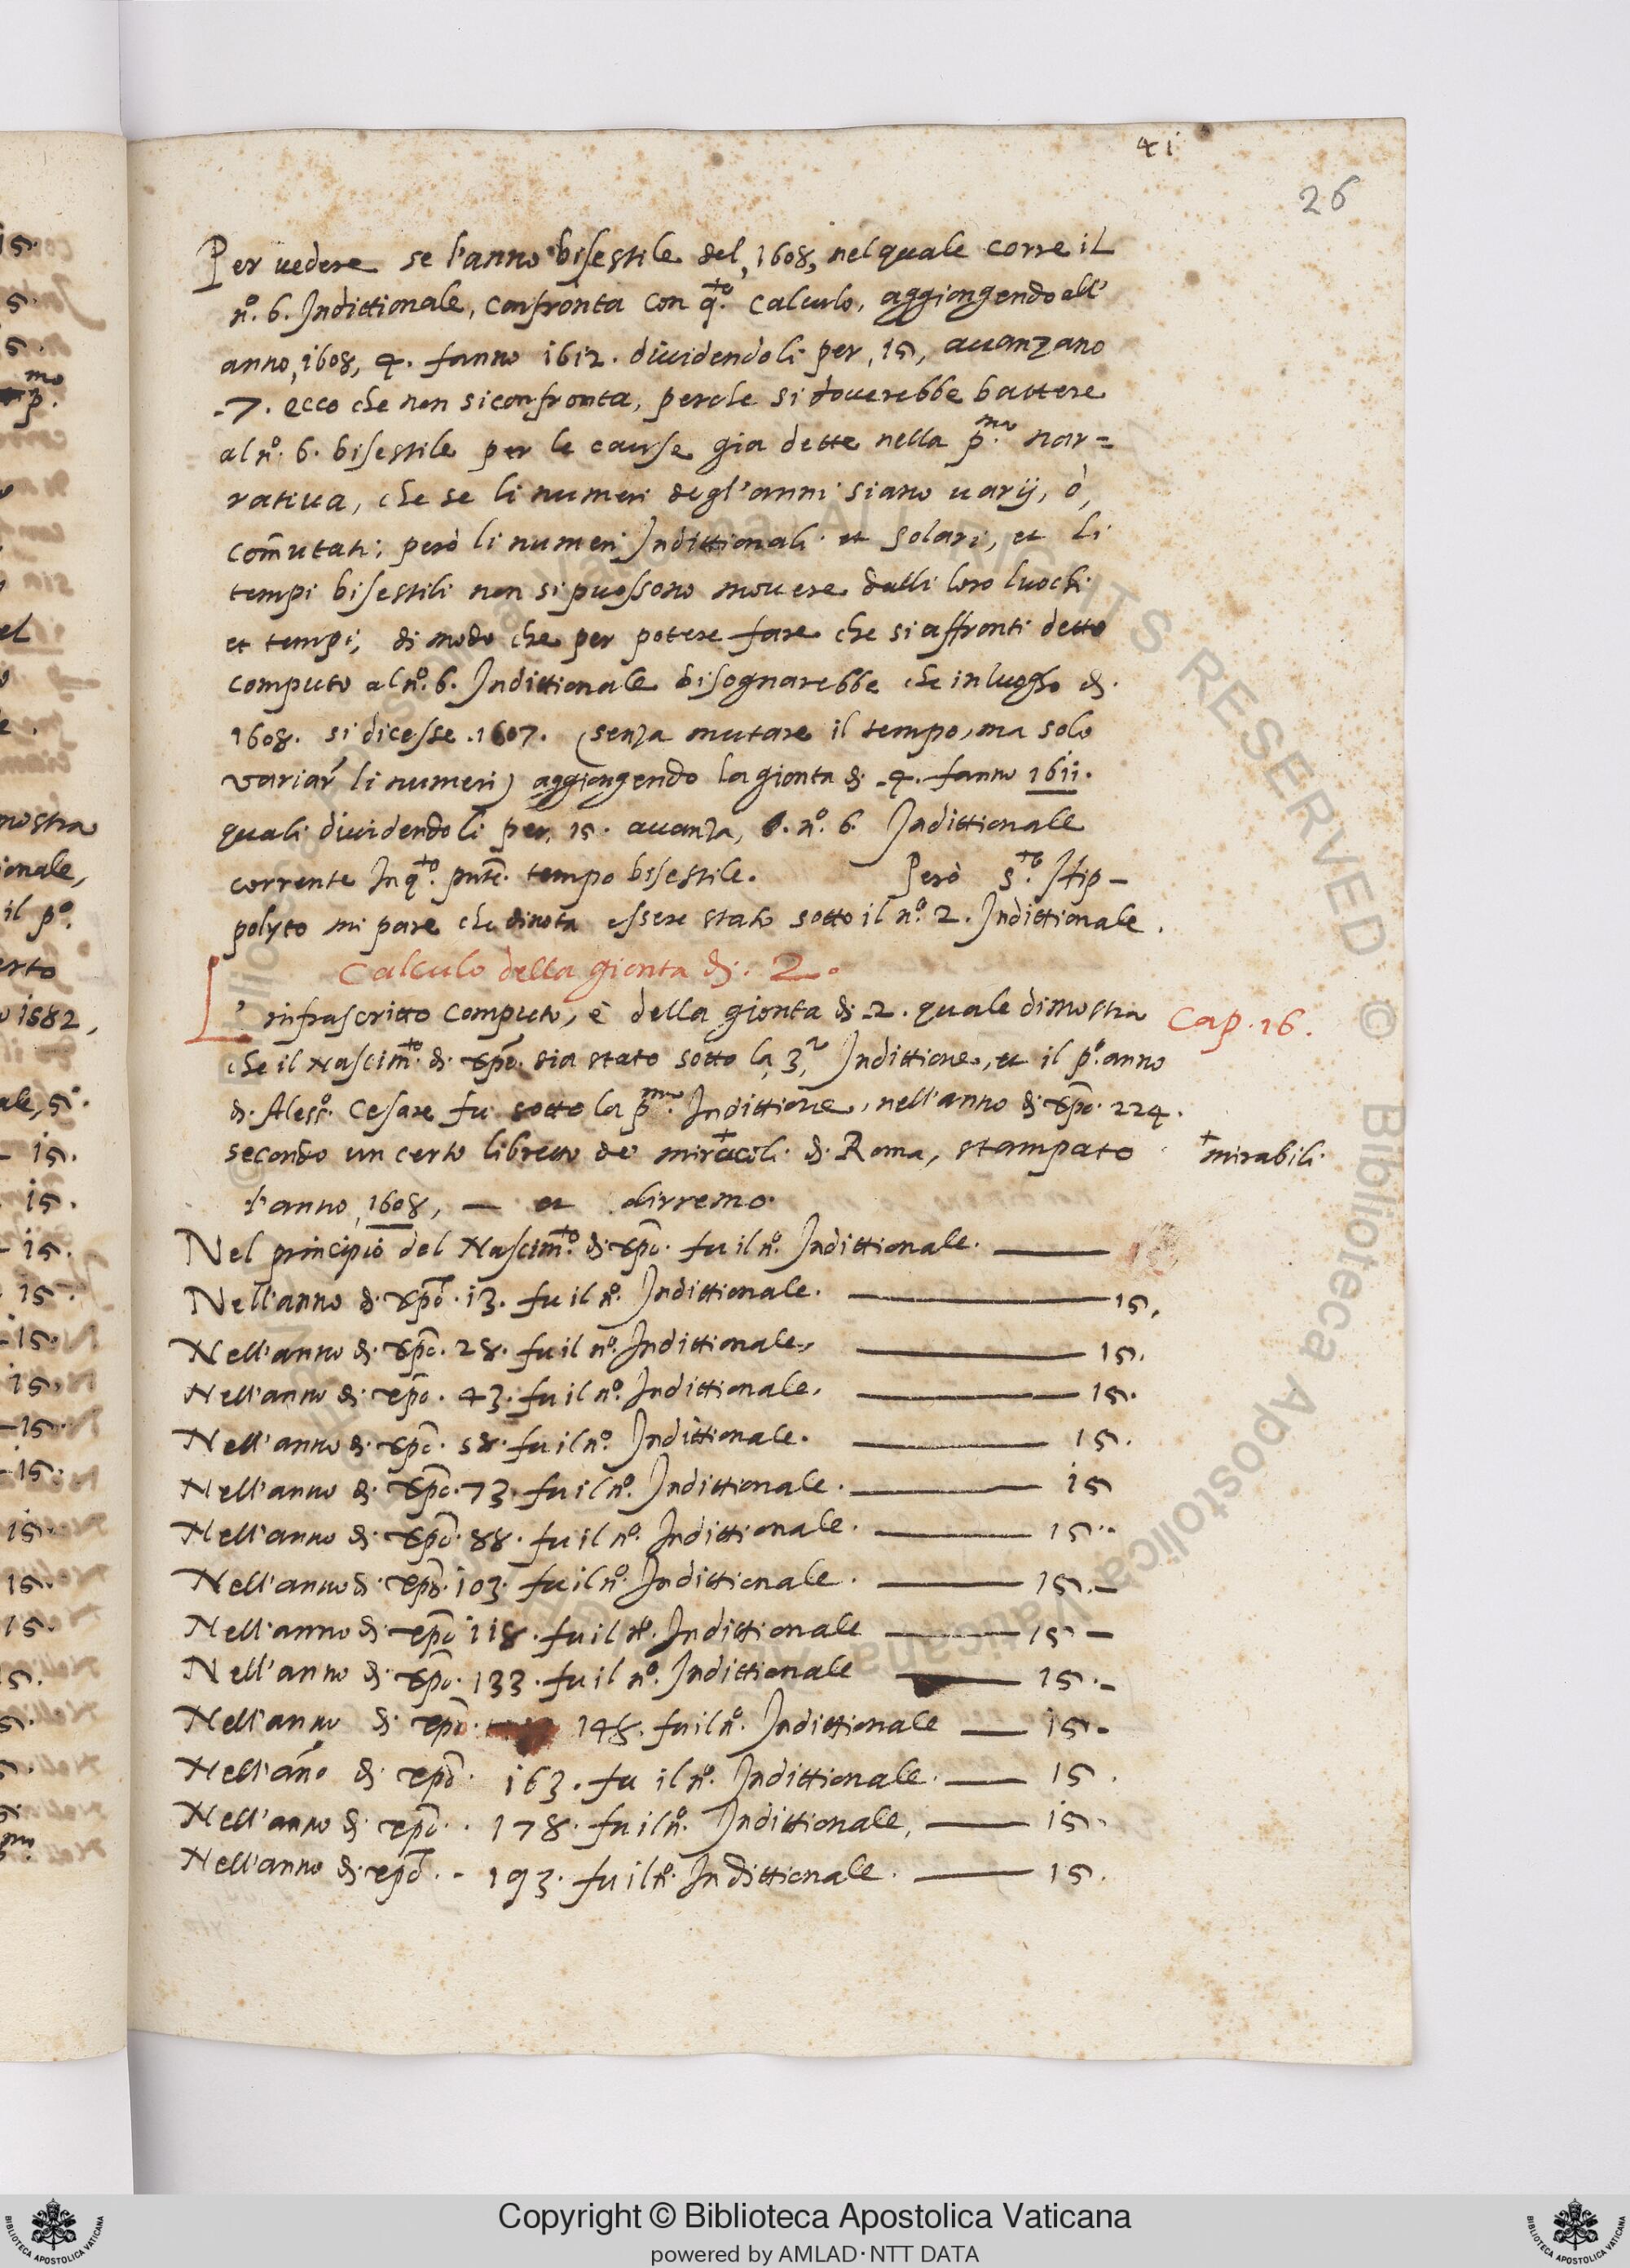 41
26
Per uedere se l'anno bisestile del, 1608, nel quale corre il
n.º 6. Indittionale, confronta con q.to calculo, aggiongendo all'
anno, 1608, 4. fanno 1612. diuidendoli per, 15, auanzano
.7. ecco che non si confronta, perche si douerebbe battere
al n.º 6. bisestile per le cause gia dette nella p.ma nar=
ratiua, che se li numeri degl'anni siano uarij, ò,
com̃utati; però li numeri Indittionali et solari, et li
tempi bisestili non si puossono mouere dalli loro luochi
et tempi, di modo che per potere fare che si affronti detto
computo al n.º 6. Indittionale bisognarebbe che in luogho di
1608. si dicesse .1607. (senza mutare il tempo, ma solo
variar li numeri) aggiongendo la gionta di .4. fanno 1611.
quali diuidendoli per, 15. auanza, 6. n.º 6. Indittionale
corrente In q.to pnte. tempo bisestile. Però s.to Hip-
polyto mi pare che dinota essere stato sotto il n.º 2. Indittionale.
Calculo della gionta di. 2.
L'infrascritto computo, è della gionta di .2. quale dimostra
Cap. 16.
che il Nascim.to di Xpo. sia stato sotto la, 3,a Indittione, et il p.º anno
di Aless.º Cesare fu sotto la p.ma Indittione, nell'anno di Xpo. 224.
secondo un certo libretto de' miracoli + di Roma, stampato
+ mirabili
l'anno, 1608, — et dirremo
Nel principio del Nascim.to di Xpo. fu il n.º Indittionale. —
Nell'anno di Xpo. 13. fu il n.º Indittionale. — 15.
Nell'anno di Xpo. 28. fu il n.º Indittionale, — 15.
Nell'anno di Xpo. 43. fu il n.º Indittionale, — 15.
Nell'anno di Xpo. 58. fu il n.º Indittionale. — 15.
Nell'anno di Xpo. 73. fu il n.º Indittionale. — 15
Nell'anno di Xpo. 88. fu il n.º Indittionale. — 15.
Nell'anno di Xpo. 103. fu il n.º Indittionale. — 15.-
Nell'anno di Xpo 118. fu il n.º Indittionale — 15 -
Nell'anno di Xpo. 133. fu il n.º Indittionale — 15.-
Nell'anno di Xpo. 148. fu il n.º Indittionale — 15.
Nell'año di Xpo. 163. fu il n.º Indittionale. — 15.
Nell'anno di Xpo. . 178. fu il n.º Indittionale, — 15.
Nell'anno di Xpo. - 193. fu il n.º Indittionale. — 15.
Copyright © Biblioteca Apostolica Vaticana
powered by AMLAD·NTT DATA